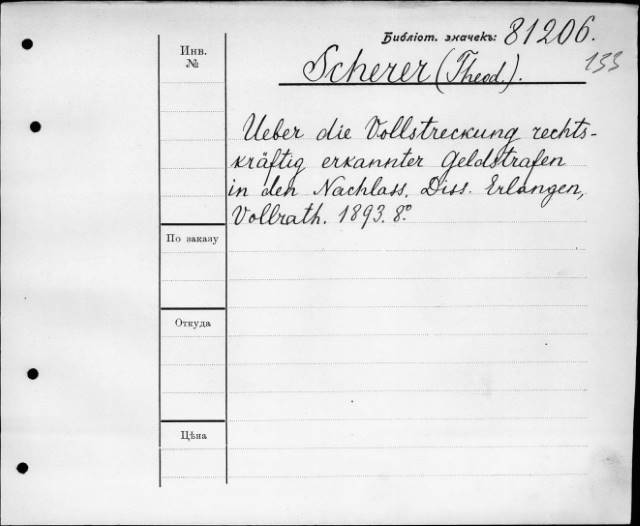 Библіот. значекъ: 81206.
133
Инв.
№
Scherer (Theod.).
Ueber die Vollstreckung rechts-
kräftig erkannter Geldstrafen
in den Nachlass. Diss. Erlangen,
Vollrath. 1893. 8°.
По заказу
Откуда
Цѣна